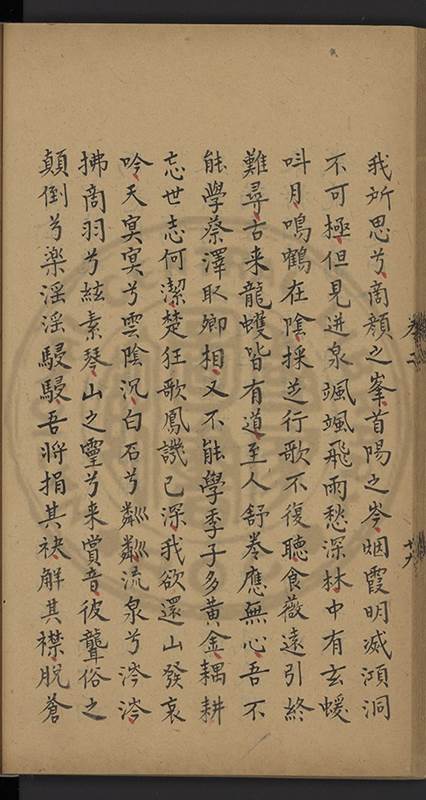 我所思兮商顏之峯首陽之岑烟霞明滅澒洞
不可極但見迸泉颯颯飛雨愁深林中有玄蝯
叫月鳴鶴在陰採芝行歌不復聽食薇遠引終
難尋古来龍蠖皆有道至人舒卷應無心吾不
能學蔡澤取卿相又不能學季子多黃金耦耕
忘世志何潔楚狂歌鳳譏已深我欲還山發哀
吟天冥冥兮雲陰沉白石兮粼粼流泉兮涔涔
拂商羽兮絃素琴山之靈兮来賞音彼聾俗之
顛倒兮樂淫淫駸駸吾将捐其袂解其襟脫蒼